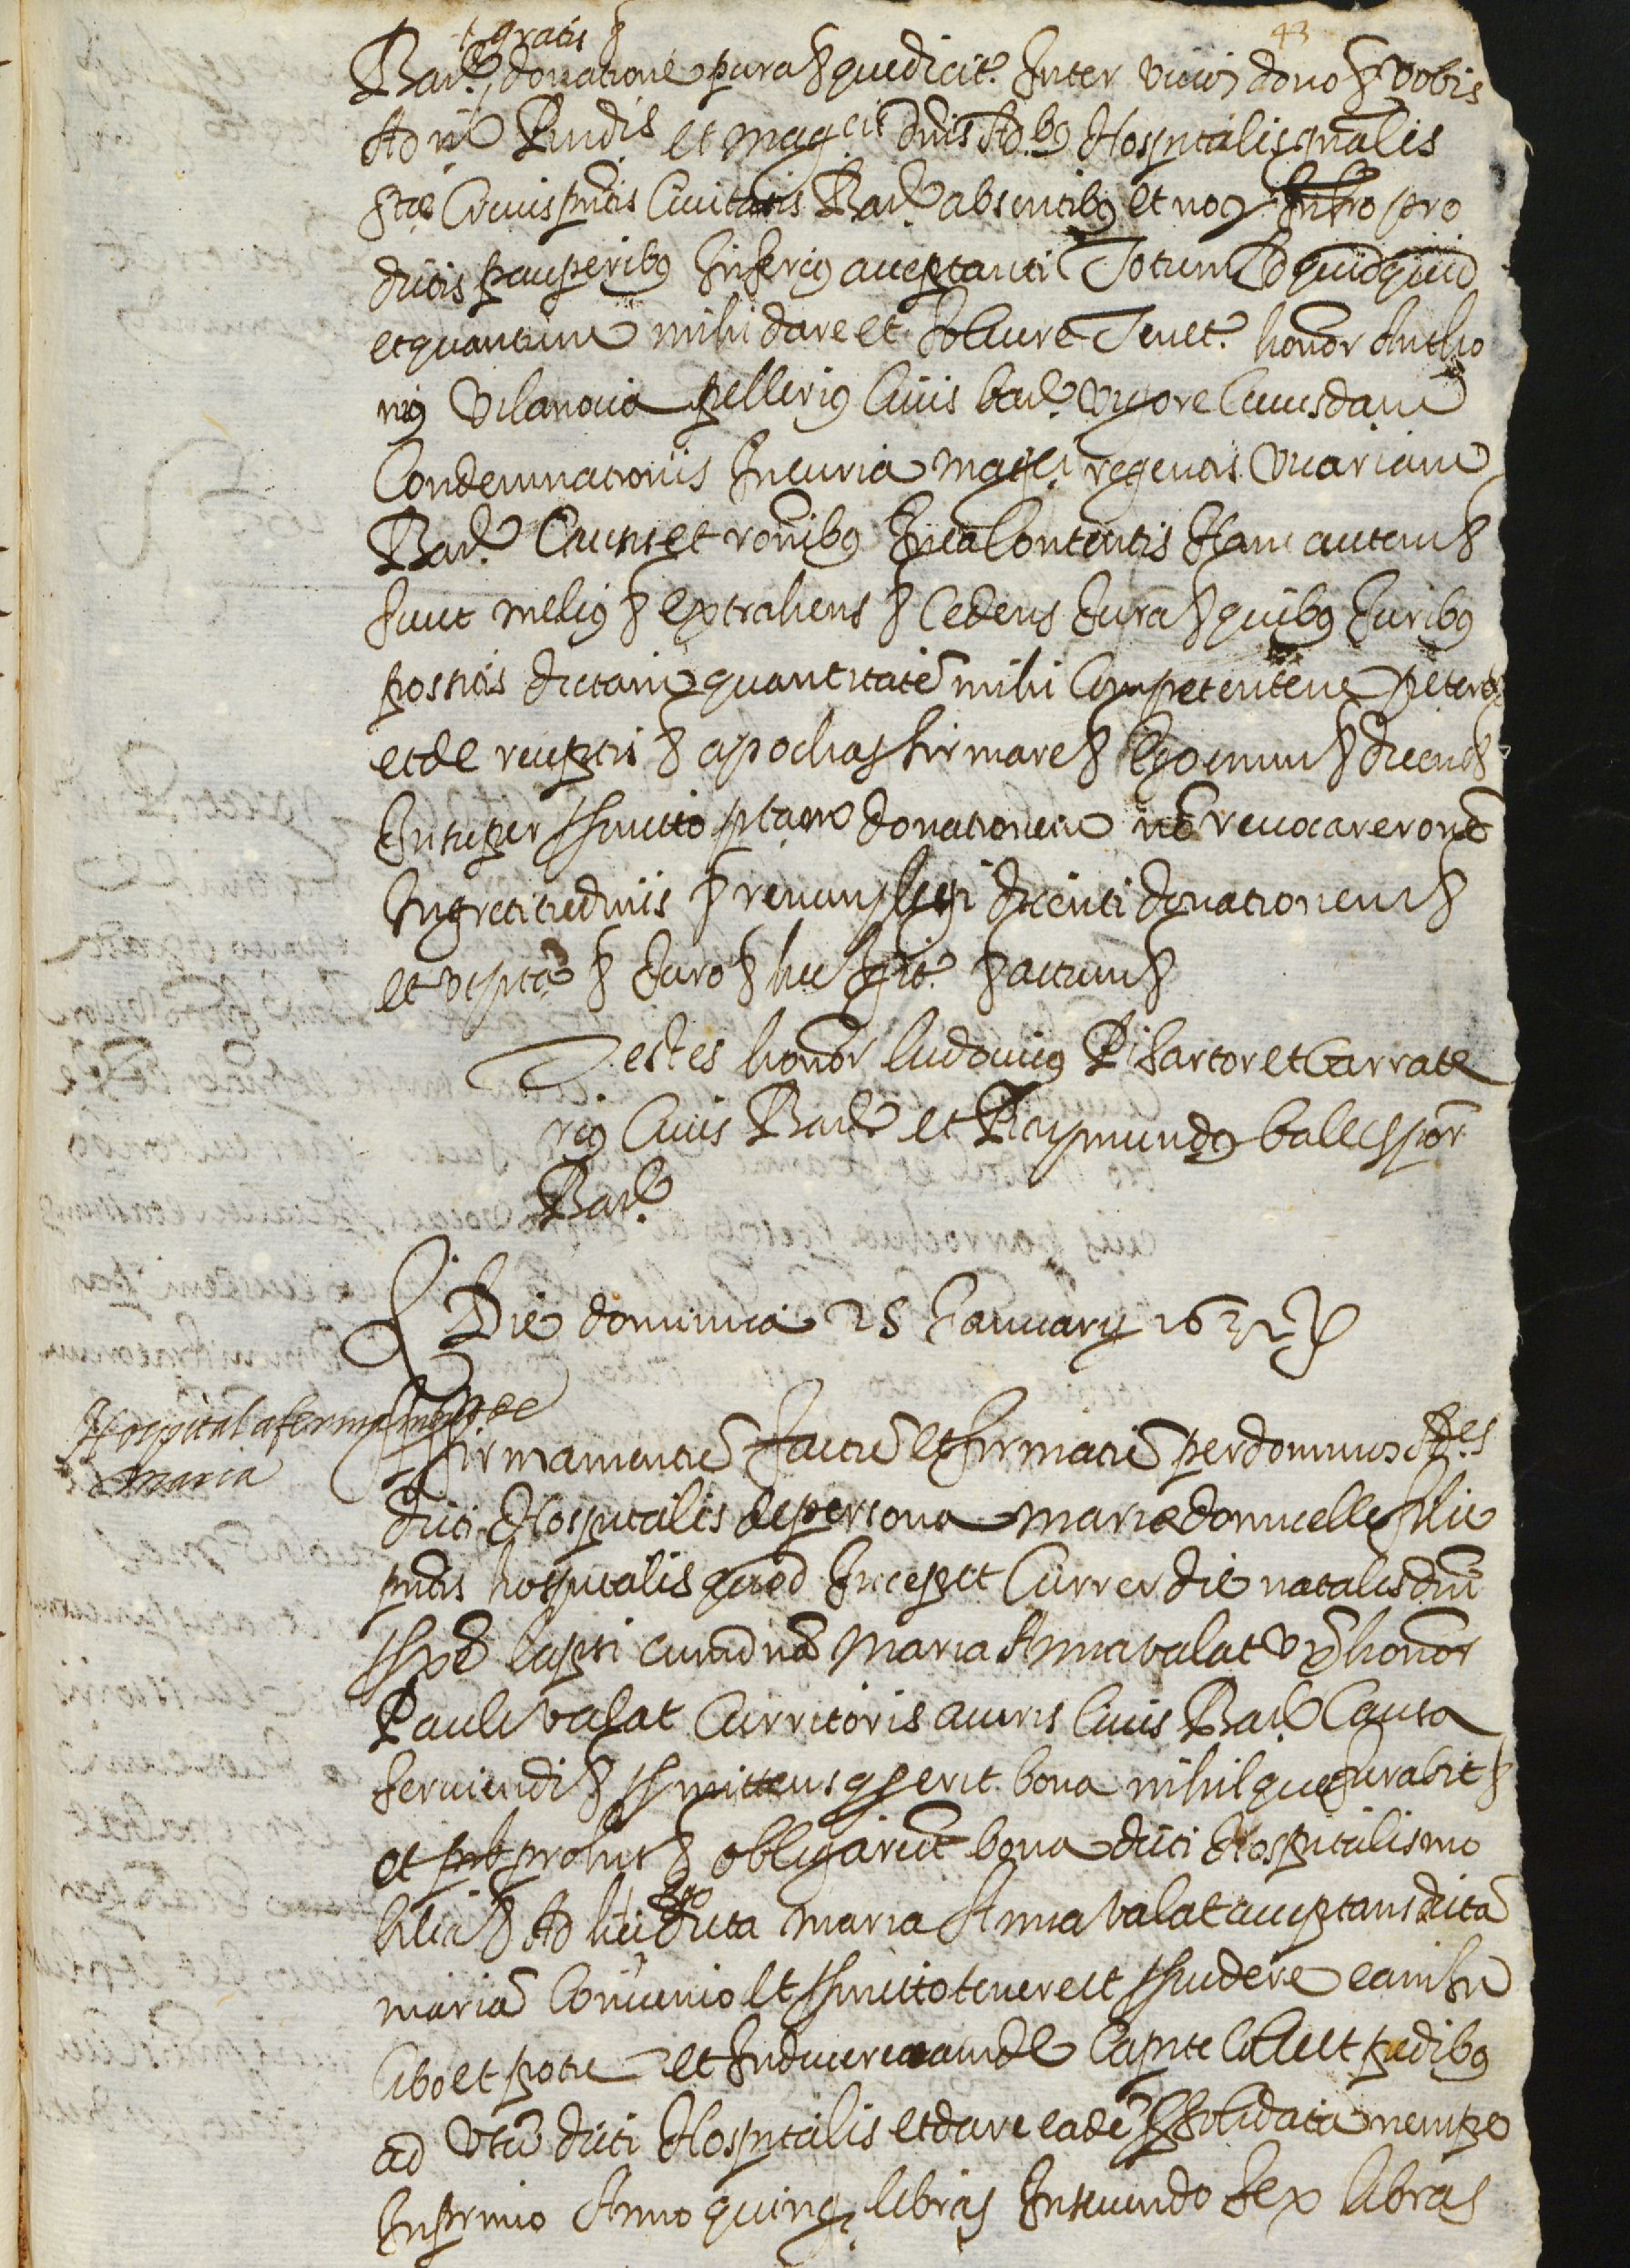 43
+ gratis &
Barᵉ donatione pura & que dicit.r Inter vivos dono & vobis
Ad.m Rndis et magcis dnis Adbus Hospitalis gnalis
Ste Crucis pntis Civitatis Barᵉ absentibus et noto Infro pro
dictis pauperibus Inferius acceptanti Totum Id quidquid
et quantum mihi dare et solvere Tenet.r honor Antho
nius Vilanova pellerius Civis barᵉ vigore Cuiusdam
Condemnationis In curia magci regentis vicariam
Barᵉ Causis et ronibus In ea Contentis Hanc autem &
sicut melius & extrahens & Cedens Iura & quibus Iuribus
possitis dictam quantitatē mihi Competentem petere
et de receptis & apochas firmare & Ego enim & dicens &
Insuper promitto pntam donationem nō revocare rone
Ingratitudinis & renuns legi dicenti donationem &
et ut pnta & Iuro & hec igit.r & actum &
Testes honor Ludovicus Pi sartor et Carrate
rius Civis Barᵉ et Raymundus bales por
Barᵉ
Die dominica 25 January 1632
Hospital afermament de
Maria
Firmamentū factū et firmatū per dominos Ades
dicti Hospitalis de persona marie domicelle filie
pntis hospitalis quod Incepit Currer die natalis dni
px̄e lapsi cum dna Maria Anna valat ux̄ honor
Pauli valat Curritoris auris Civis Barᵉ Causa
serviendi & promittens q erit bona nihilque furabit &
et prohut & obligarūt bona dicti Hospitalis mo
bilia & Ad hec ego dicta Maria Anna valat acceptans dictā
mariā Convenio et promitto tenere et providere eam In
Cibo et potu et Inducere eamde Capite Collo et pedibus
ad usū dicti Hospitalis et dare eadē p solidata nempe
In primo Anno quinq. libras In secundo sex libras